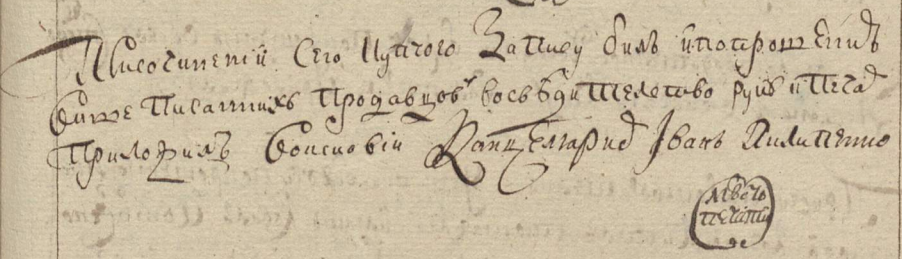 При сочиненіи сего купчого запису билъ и по прошенію
више писанихъ продавцовъ во свѣдителство руку и печат
приложилъ войсковій канцеляристъ Іванъ Пилипенко
мѣсто
печати